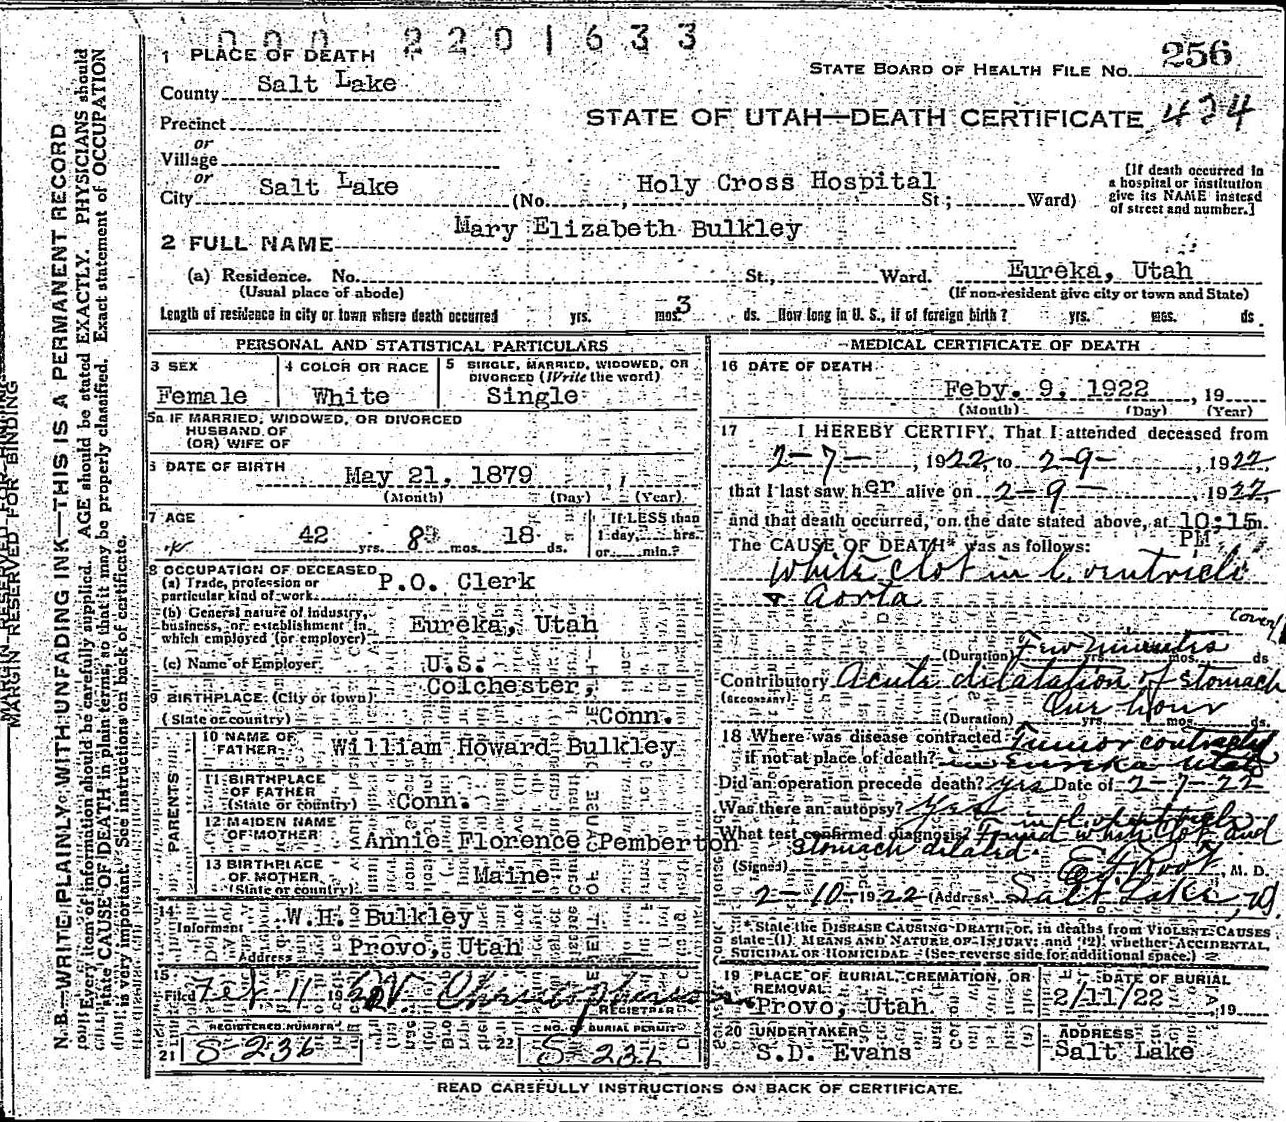 000 2201633
1 PLACE OF DEATH
256
STATE BOARD OF HEALTH FILE NO.
County Salt Lake
STATE OF UTAH—DEATH CERTIFICATE 424
Precinct
or
Village
or
City Salt Lake (No. , Holy Cross Hospital St; Ward)
[If death occurred in
a hospital or institution
give its NAME instead
of street and number.]
2 FULL NAME Mary Elizabeth Bulkley
(a) Residence. No. St., Ward. Eureka, Utah
(Usual place of abode) (If non-resident give city or town and State)
Length of residence in city or town where death occurred yrs. mos. 3 ds. How long in U. S., if of foreign birth? yrs. mos. ds
PERSONAL AND STATISTICAL PARTICULARS
3 SEX
Female
4 COLOR OR RACE
White
5 SINGLE, MARRIED, WIDOWED, OR
DIVORCED (Write the word)
Single
5a IF MARRIED, WIDOWED, OR DIVORCED
HUSBAND OF
(OR) WIFE OF
6 DATE OF BIRTH May 21, 1879
(Month) (Day) (Year)
7 AGE
42 yrs. 8 mos. 18 ds.
If LESS than
1 day, hrs.
or min.?
8 OCCUPATION OF DECEASED
(a) Trade, profession or
particular kind of work P.O. Clerk
(b) General nature of industry,
business, or establishment in
which employed (or employer) Eureka, Utah
(c) Name of Employer U.S.
9 BIRTHPLACE (City or town) Colchester,
(State or country) Conn.
PARENTS
10 NAME OF
FATHER William Howard Bulkley
11 BIRTHPLACE
OF FATHER
(State or country) Conn.
12 MAIDEN NAME
OF MOTHER Annie Florence Pemberton
13 BIRTHPLACE
OF MOTHER
(State or country) Maine
14
Informant W.H. Bulkley
Address Provo, Utah
15
Filed Feb 11 19
REGISTRAR
REGISTERED NUMBER
21 S-236
NO. OF BURIAL PERMIT
22 S-236
MEDICAL CERTIFICATE OF DEATH
16 DATE OF DEATH
Feby. 9, 1922, 19
(Month) (Day) (Year)
17 I HEREBY CERTIFY, That I attended deceased from
2-7-, 1922, to 2-9-, 1922,
that I last saw her alive on 2-9- 1922
and that death occurred, on the date stated above, at 10:15 m.
PM
The CAUSE OF DEATH* was as follows:
White clot in l. ventricle
& aorta
(over)
(Duration) Few minutes yrs. mos. ds
Contributory Acute dilatation of stomach
(SECONDARY)
(Duration) One hour yrs. mos. ds.
18 Where was disease contracted Tumor contracted
if not at place of death? in Eureka Utah
Did an operation precede death? yes Date of 2-7-22
Was there an autopsy? Yes
in l. ventricle
What test confirmed diagnosis? Found white clot and
stomach dilated.
(Signed) , M. D.
2-10-1922 (Address) Salt Lake,
* State the DISEASE CAUSING DEATH, or, in deaths from VIOLENT CAUSES
state (1) MEANS AND NATURE OF INJURY; and (2) whether ACCIDENTAL,
SUICIDAL OR HOMICIDAL. (See reverse side for additional space.)
19 PLACE OF BURIAL, CREMATION, OR
REMOVAL
Provo, Utah
DATE OF BURIAL
2/11/22, 19
20 UNDERTAKER
S.D. Evans
ADDRESS
Salt Lake
READ CAREFULLY INSTRUCTIONS ON BACK OF CERTIFICATE.
MARGIN RESERVED FOR BINDING
N.B.—WRITE PLAINLY WITH UNFADING INK—THIS IS A PERMANENT RECORD
Every item of information should be carefully supplied. AGE should be stated EXACTLY. PHYSICIANS should
state CAUSE OF DEATH in plain terms, so that it may be properly classified. Exact statement of OCCUPATION
is very important. See instructions on back of certificate.